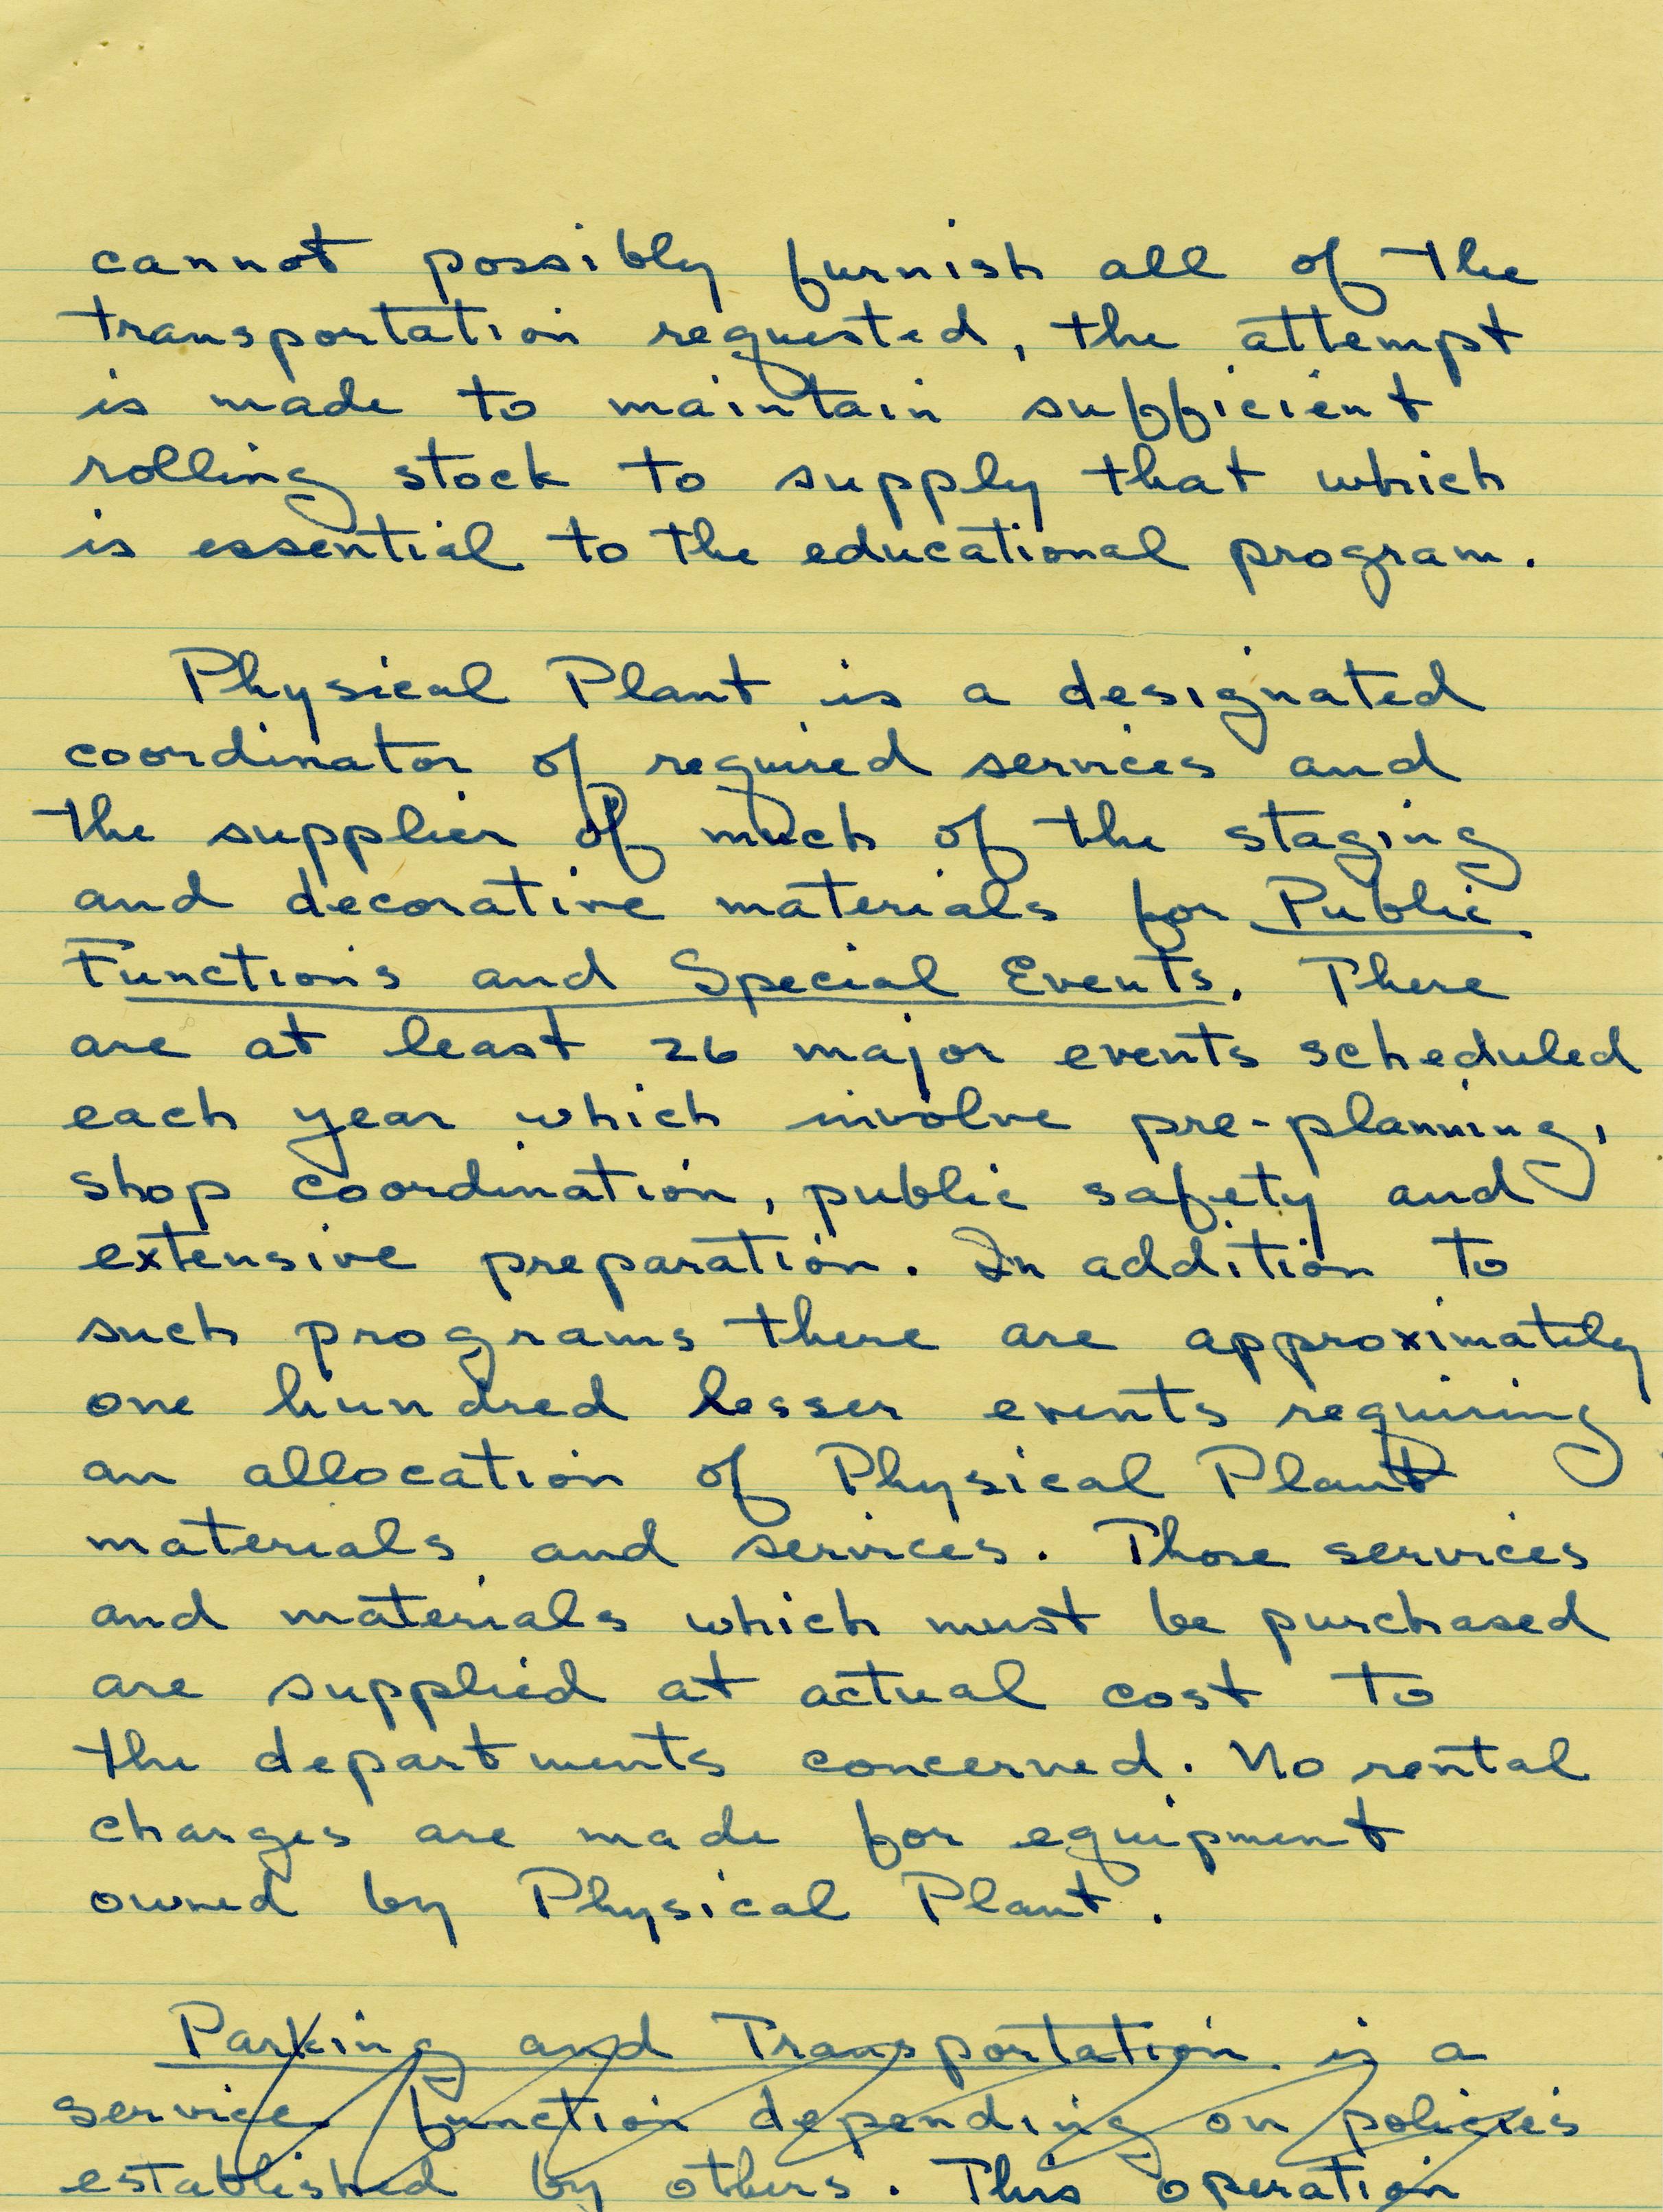 cannot possibly furnish all of the
transportation requested, the attempt
is made to maintain sufficient
rolling stock to supply that which
is essential to the educational program.
Physical Plant is a designated
coordinator of required services and
the supplier of much of the staging
and decorative materials for Public
Functions and Special Events. There
are at least 26 major events scheduled
each year which involve pre-planning,
shop coordination, public safety and
extensive preparation. In addition to
such programs there are approximately
one hundred lesser events requiring
an allocation of Physical Plant
materials and services. Those services
and materials which must be purchased
are supplied at actual cost to
the departments concerned. No rental
charges are made for equipment
owned by Physical Plant.
Parking and Transportation is a
service function depending on policies
established by others. This operation